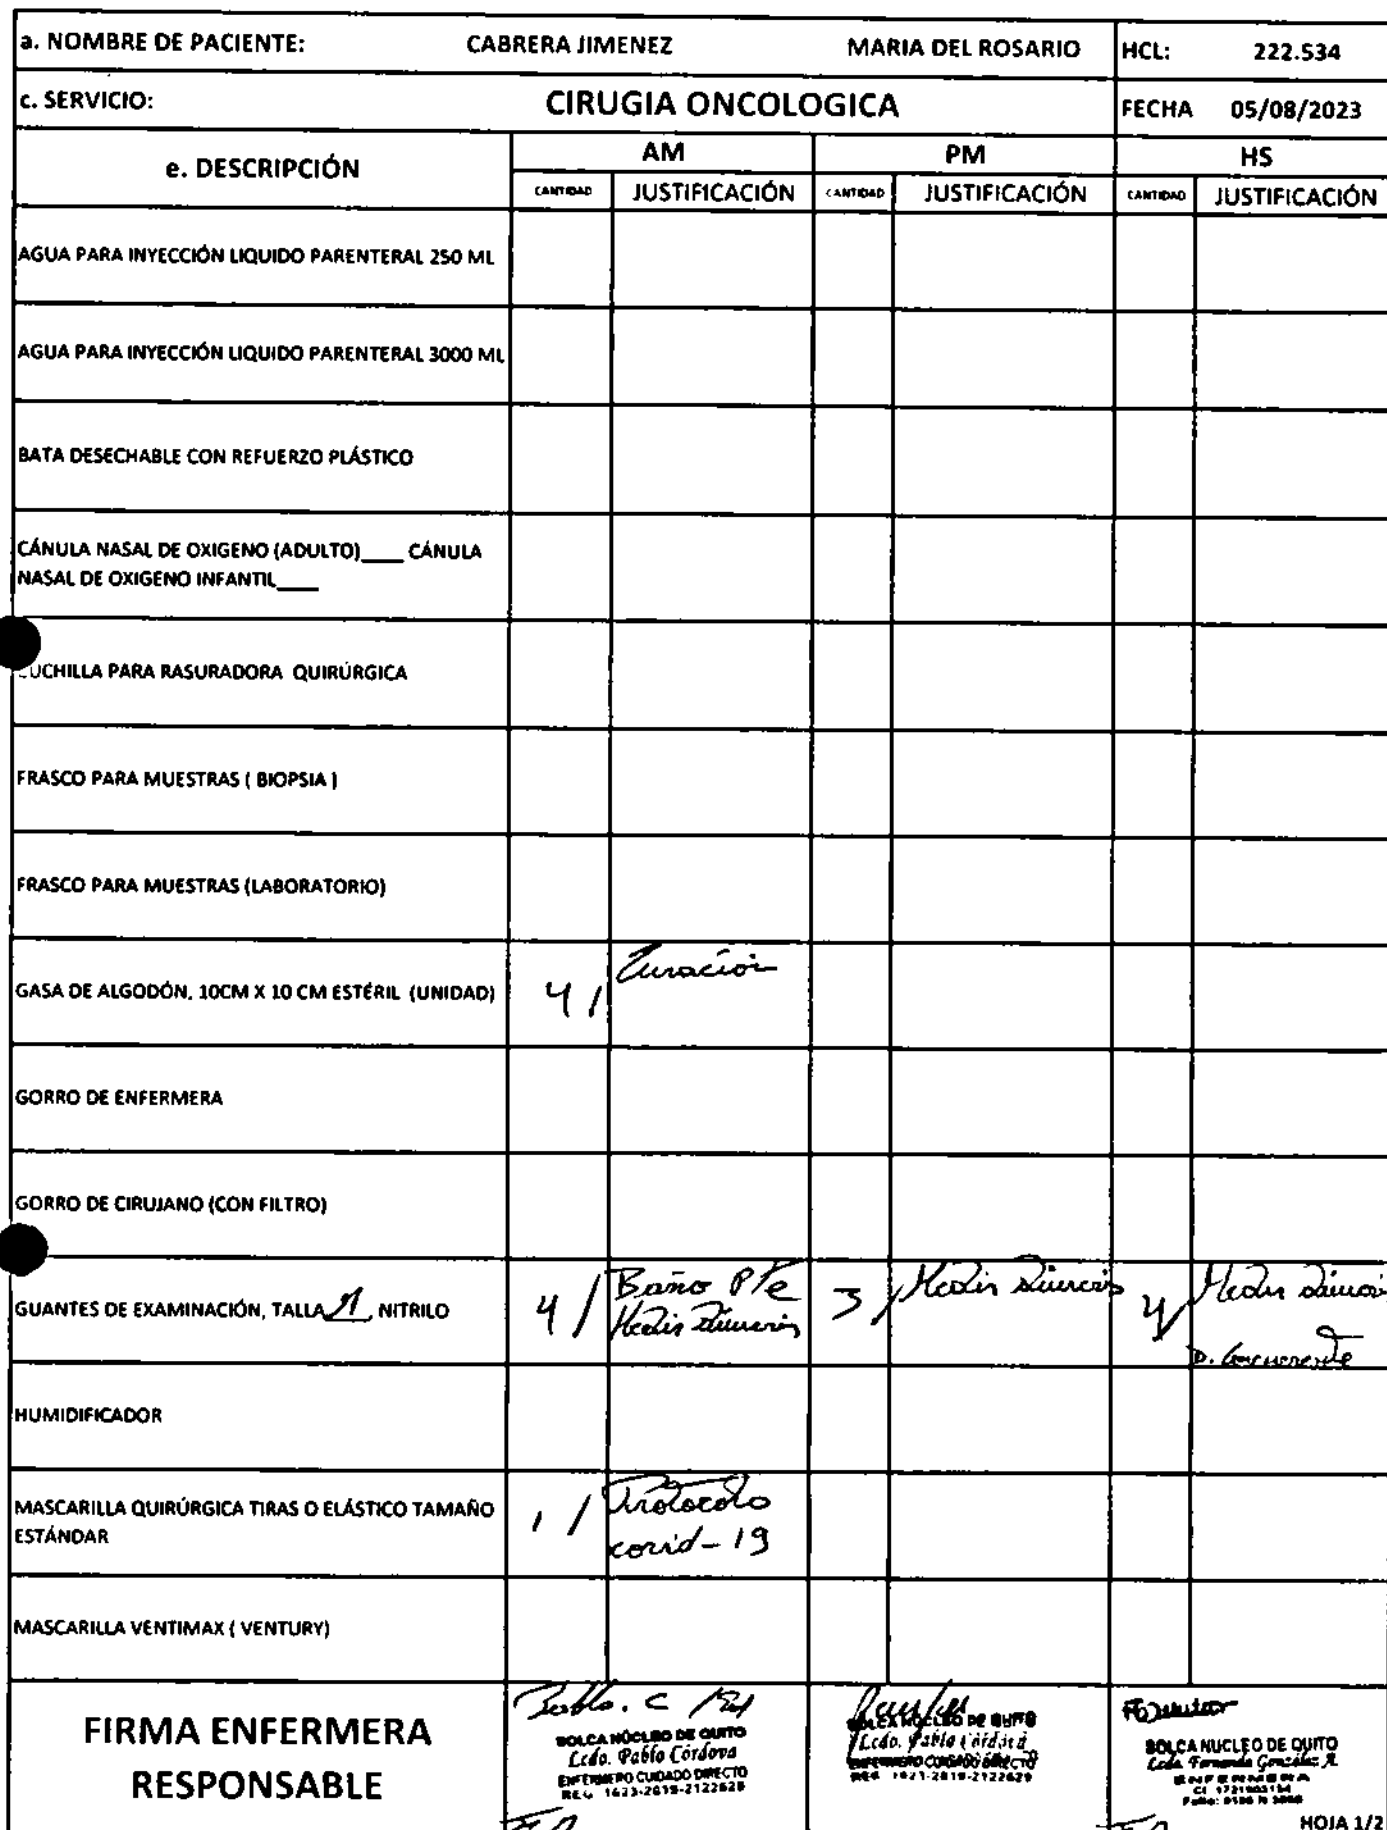 a. NOMBRE DE PACIENTE: CABRERA JIMENEZ MARIA DEL ROSARIO HCL: 222.534
c. SERVICIO: CIRUGIA ONCOLOGICA FECHA 05/08/2023
e. DESCRIPCIÓN AM PM HS
CANTIDAD JUSTIFICACIÓN CANTIDAD JUSTIFICACIÓN CANTIDAD JUSTIFICACIÓN
AGUA PARA INYECCIÓN LIQUIDO PARENTERAL 250 ML
AGUA PARA INYECCIÓN LIQUIDO PARENTERAL 3000 ML
BATA DESECHABLE CON REFUERZO PLÁSTICO
CÁNULA NASAL DE OXIGENO (ADULTO)____ CÁNULA
NASAL DE OXIGENO INFANTIL____
UCHILLA PARA RASURADORA QUIRÚRGICA
FRASCO PARA MUESTRAS ( BIOPSIA )
FRASCO PARA MUESTRAS (LABORATORIO)
GASA DE ALGODÓN, 10CM X 10 CM ESTÉRIL (UNIDAD) 4 / Curación
GORRO DE ENFERMERA
GORRO DE CIRUJANO (CON FILTRO)
GUANTES DE EXAMINACIÓN, TALLA , NITRILO 4 / Baño P/e 3 / 4 /
HUMIDIFICADOR
MASCARILLA QUIRÚRGICA TIRAS O ELÁSTICO TAMAÑO
ESTÁNDAR 1 / Protocolo
covid-19
MASCARILLA VENTIMAX ( VENTURY)
FIRMA ENFERMERA
RESPONSABLE
SOLCA NÚCLEO DE QUITO
Lcdo. Pablo Córdova
ENFERMERO CUIDADO DIRECTO
SOLCA NÚCLEO DE QUITO
Lcdo. Pablo Córdova
ENFERMERO CUIDADO DIRECTO
SOLCA NUCLEO DE QUITO
Lcda. Fernanda González R.
ENFERMERA
HOJA 1/2